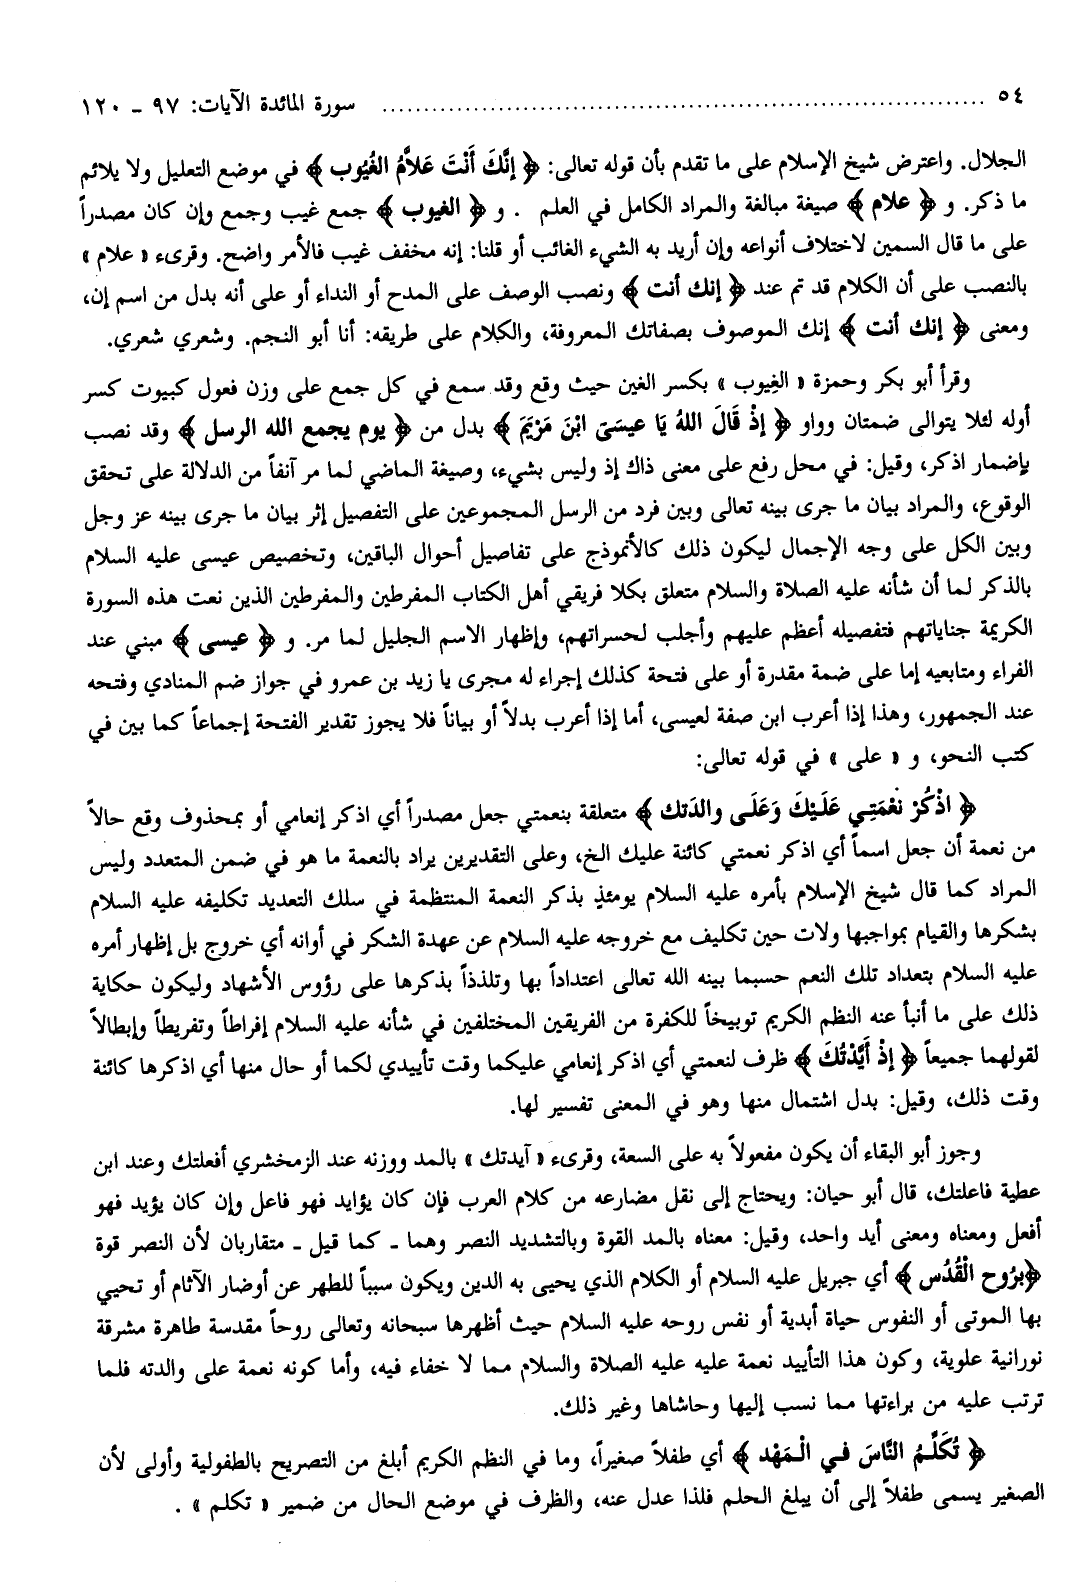 ٥٤ ........................................................................ سورة المائدة الآيات: ٩٧ ـ ١٢٠
الجلال. واعترض شيخ الإسلام على ما تقدم بأن قوله تعالى: ﴿ إِنَّكَ أَنْتَ عَلاَّمُ الغُيُوب ﴾ في موضع التعليل ولا يلائم
ما ذكر. و ﴿ علام ﴾ صيغة مبالغة والمراد الكامل في العلم . و ﴿ الغيوب ﴾ جمع غيب وجمع وإن كان مصدراً
على ما قال السمين لاختلاف أنواعه وإن أريد به الشيء الغائب أو قلنا: إنه مخفف غيب فالأمر واضح. وقرىء « علام »
بالنصب على أن الكلام قد تم عند ﴿ إنك أنت ﴾ ونصب الوصف على المدح أو النداء أو على أنه بدل من اسم إن،
ومعنى ﴿ إنك أنت ﴾ إنك الموصوف بصفاتك المعروفة، والكلام على طريقه: أنا أبو النجم. وشعري شعري.
وقرأ أبو بكر وحمزة « الغِيوب » بكسر الغين حيث وقع وقد سمع في كل جمع على وزن فعول كبيوت كسر
أوله لئلا يتوالى ضمتان وواو ﴿ إِذْ قَالَ اللهُ يَا عيسَىٰ ابْنَ مَرْيَمَ ﴾ بدل من ﴿ يوم يجمع الله الرسل ﴾ وقد نصب
بإضمار اذكر، وقيل: في محل رفع على معنى ذاك إذ وليس بشيء، وصيغة الماضي لما مر آنفاً من الدلالة على تحقق
الوقوع، والمراد بيان ما جرى بينه تعالى وبين فرد من الرسل المجموعين على التفصيل إثر بيان ما جرى بينه عز وجل
وبين الكل على وجه الإجمال ليكون ذلك كالأنموذج على تفاصيل أحوال الباقين، وتخصيص عيسى عليه السلام
بالذكر لما أن شأنه عليه الصلاة والسلام متعلق بكلا فريقي أهل الكتاب المفرطين والمفرطين الذين نعت هذه السورة
الكريمة جناياتهم فتفصيله أعظم عليهم وأجلب لحسراتهم، وإظهار الاسم الجليل لما مر. و ﴿ عيسى ﴾ مبني عند
الفراء ومتابعيه إما على ضمة مقدرة أو على فتحة كذلك إجراء له مجرى يا زيد بن عمرو في جواز ضم المنادي وفتحه
عند الجمهور، وهذا إذا أعرب ابن صفة لعيسى، أما إذا أعرب بدلاً أو بياناً فلا يجوز تقدير الفتحة إجماعاً كما بين في
كتب النحو، و « على » في قوله تعالى:
﴿ اذْكُرْ نعْمَتِي عَلَيْكَ وَعَلَى والدَتك ﴾ متعلقة بنعمتي جعل مصدراً أي اذكر إنعامي أو بمحذوف وقع حالاً
من نعمة أن جعل اسماً أي اذكر نعمتي كائنة عليك الخ، وعلى التقديرين يراد بالنعمة ما هو في ضمن المتعدد وليس
المراد كما قال شيخ الإسلام بأمره عليه السلام يومئذٍ بذكر النعمة المنتظمة في سلك التعديد تكليفه عليه السلام
بشكرها والقيام بمواجبها ولات حين تكليف مع خروجه عليه السلام عن عهدة الشكر في أوانه أي خروج بل إظهار أمره
عليه السلام بتعداد تلك النعم حسبما بينه الله تعالى اعتداداً بها وتلذذاً بذكرها على رؤوس الأشهاد وليكون حكاية
ذلك على ما أنبأ عنه النظم الكريم توبيخاً للكفرة من الفريقين المختلفين في شأنه عليه السلام إفراطاً وتفريطاً وإبطالاً
لقولهما جميعاً ﴿ إذْ أَيَّدْتُكَ ﴾ ظرف لنعمتي أي اذكر إنعامي عليكما وقت تأييدي لكما أو حال منها أي اذكرها كائنة
وقت ذلك، وقيل: بدل اشتمال منها وهو في المعنى تفسير لها.
وجوز أبو البقاء أن يكون مفعولاً به على السعة، وقرىء « آيدتك » بالمد ووزنه عند الزمخشري أفعلتك وعند ابن
عطية فاعلتك، قال أبو حيان: ويحتاج إلى نقل مضارعه من كلام العرب فإن كان يؤايد فهو فاعل وإن كان يؤيد فهو
أفعل ومعناه ومعنى أيد واحد، وقيل: معناه بالمد القوة وبالتشديد النصر وهما ـ كما قيل ـ متقاربان لأن النصر قوة
﴿برُوح الْقُدُس ﴾ أي جبريل عليه السلام أو الكلام الذي يحيى به الدين ويكون سبباً للطهر عن أوضار الآثام أو تحيي
بها الموتى أو النفوس حياة أبدية أو نفس روحه عليه السلام حيث أظهرها سبحانه وتعالى روحاً مقدسة طاهرة مشرقة
نورانية علوية، وكون هذا التأييد نعمة عليه عليه الصلاة والسلام مما لا خفاء فيه، وأما كونه نعمة على والدته فلما
ترتب عليه من براءتها مما نسب إليها وحاشاها وغير ذلك.
﴿ تُكَلِّمُ النَّاسَ في الْمَهْد ﴾ أي طفلاً صغيراً، وما في النظم الكريم أبلغ من التصريح بالطفولية وأولى لأن
الصغير يسمى طفلاً إلى أن يبلغ الحلم فلذا عدل عنه، والظرف في موضع الحال من ضمير « تكلم » .